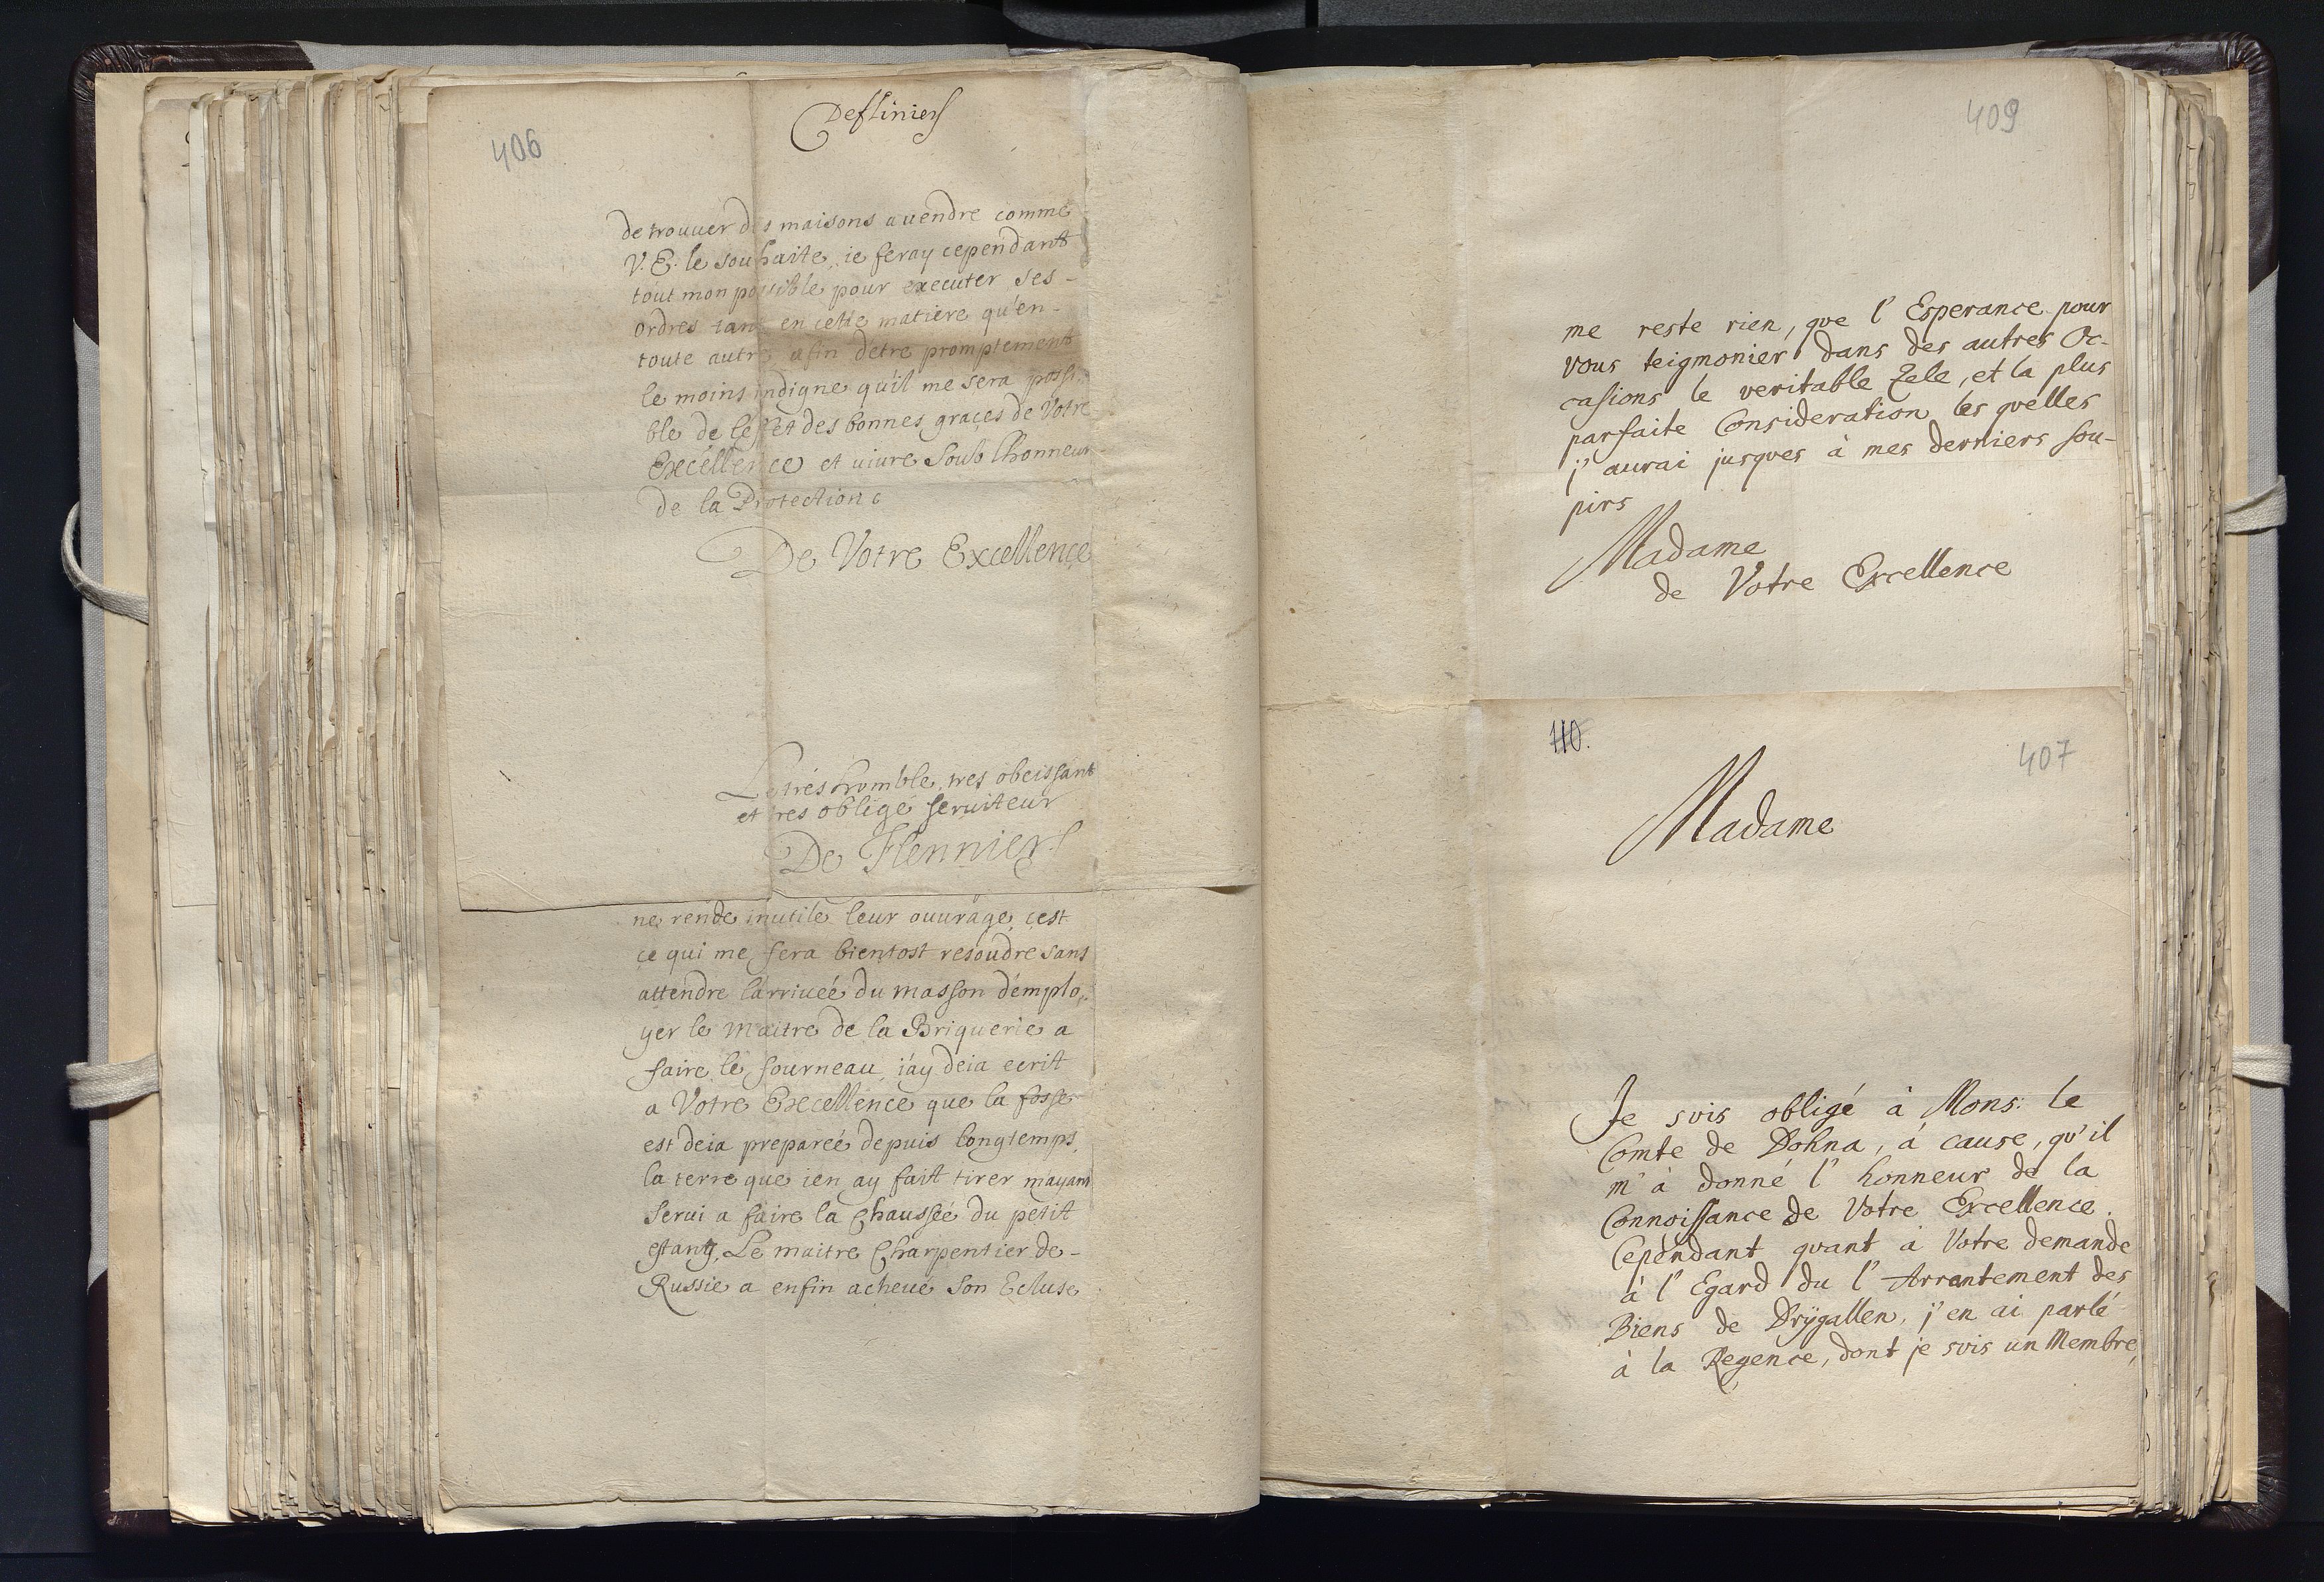 406
de trouuer des maisons a uendre comme
V. E. le souhaite, ie feray cependant
tout mon possible pour executer ses -
ordres tant en cette matiere qu'en -
toute autre afin detre promptement
le moins indigne qu'il me sera possi-
ble de et des bonnes graces de Votre
Excellence et uiure soub lhonneur
de la Protection
De Votre Excellence
Le très humble, tres obeissant
et tres obligé seruiteur
De Flennier
ne rende inutile leur ouurage, c'est
ce qui me fera bientost resoudre sans
attendre l'arriueé du masson d'emplo-
yer le maitre de la Briquerie a
faire le fourneau, i'ay deia ecrit
a Votre Excellence que la fosse
est deia prepareé depuis longtemps,
la terre que ien ay fait tirer mayant
serui a faire la Chausseé du petit
estang, Le maitre Charpentier de -
Russie a enfin acheué son Ecluse
409
me reste rien, que l' Esperance pour
vous teigmonier dans des autres Oc-
casions le veritable Zele, et la plus
parfaite Consideration les quelles
j' aurai jusques à mes derniers sou-
pirs
Madame
de Votre Excellence
110.
407
Madame
Je suis obligé à Mons: le
Comte de Dohna, à cause, qu'il
m' à donné l' honneur de la
Connoissance de Votre Excellence.
Cependant quant à Votre demande
à l' Egard du l' Arrantement des
Biens de Drÿgallen, j' en ai parlé
à la Regence, dont je suis un Membre,